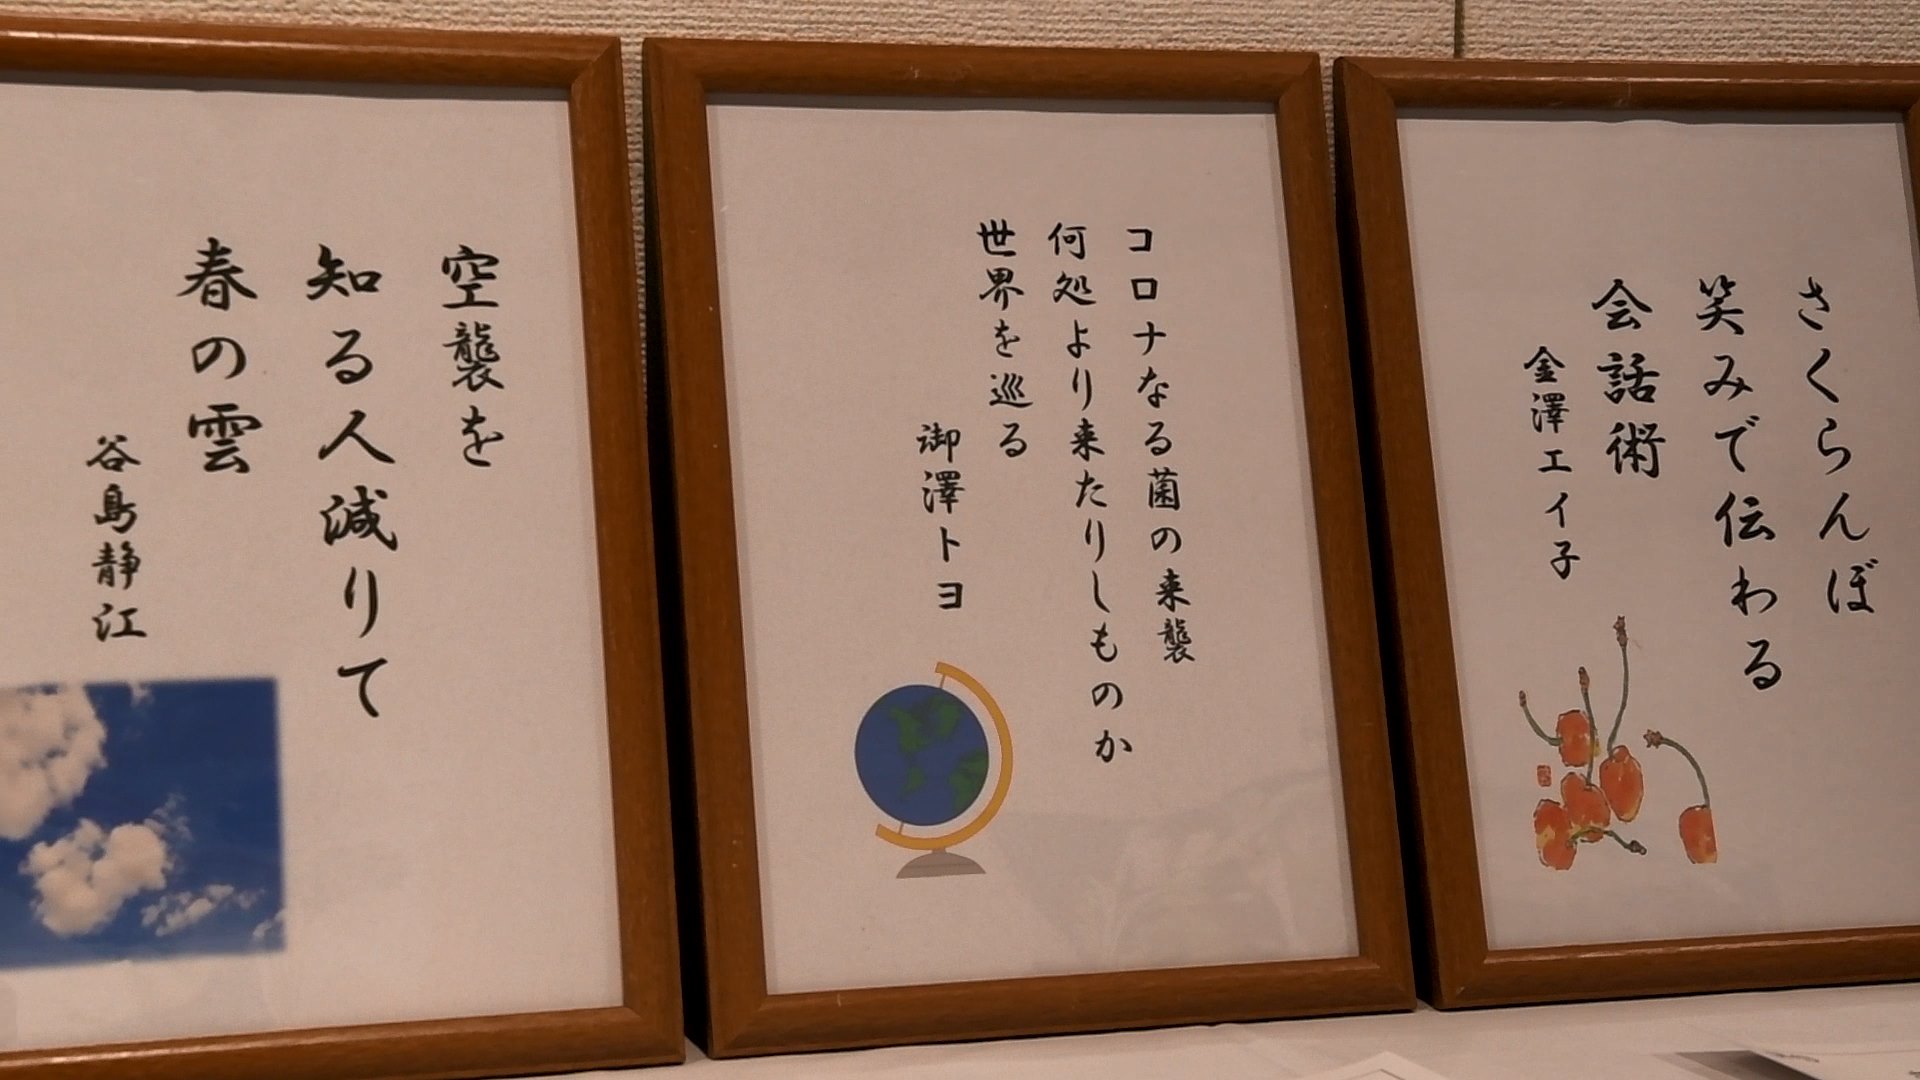 さくらんぼ
笑みで伝わる
会話術
金澤エイ子
コロナなる菌の来襲
何処より来たりしものか
世界を巡る
御澤トヨ
空襲を
知る人減りて
春の雲
谷島静江